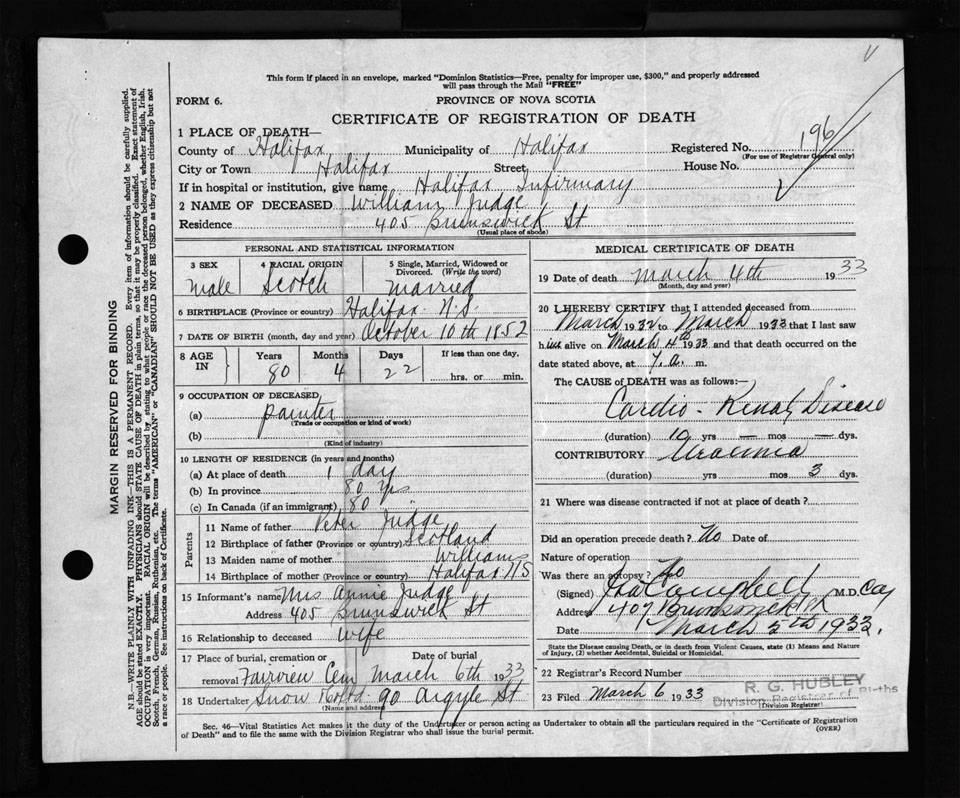 This form if placed in an envelope, marked "Dominion Statistics—Free, penalty for improper use, $300," and properly addressed
will pass through the Mail "FREE"
FORM 6.
PROVINCE OF NOVA SCOTIA
CERTIFICATE OF REGISTRATION OF DEATH
1 PLACE OF DEATH—
County of Halifax Municipality of Halifax Registered No. 196
(For use of Registrar General only)
City or Town Halifax Street House No.
If in hospital or institution, give name Halifax Infirmary
2 NAME OF DECEASED William Judge
Residence 405 Brunswick St
(Usual place of abode)
PERSONAL AND STATISTICAL INFORMATION
3 SEX 4 RACIAL ORIGIN 5 Single, Married, Widowed or Divorced. (Write the word)
Male Scotch Married
6 BIRTHPLACE (Province or country) Halifax N.S.
7 DATE OF BIRTH (month, day and year) October 10th 1852
8 AGE IN Years Months Days If less than one day.
80 4 22 hrs. or min.
9 OCCUPATION OF DECEASED
(a) painter
(Trade or occupation or kind of work)
(b)
(Kind of industry)
10 LENGTH OF RESIDENCE (in years and months)
(a) At place of death 1 day
(b) In province 80 yrs
(c) In Canada (if an immigrant) 80
Parents
11 Name of father Peter Judge
12 Birthplace of father (Province or country) Scotland
13 Maiden name of mother Williams
14 Birthplace of mother (Province or country) Halifax N S
15 Informant's name Mrs Annie Judge
Address 405 Brunswick St
16 Relationship to deceased wife
17 Place of burial, cremation or Date of burial
removal Fairview Cem March 6th 1933
18 Undertaker Snow & Co Ltd 90 Argyle St
(Name and address)
MEDICAL CERTIFICATE OF DEATH
19 Date of death March 4th 1933
(Month, day and year)
20 I HEREBY CERTIFY that I attended deceased from
March 1932 to March 1933 that I last saw
him alive on March 4th 1933 and that death occurred on the
date stated above, at 7.a. m.
The CAUSE OF DEATH was as follows:—
Cardio-Renal Disease
(duration) 10 yrs — mos — dys.
CONTRIBUTORY Uraemia
(duration) yrs mos 3 dys.
21 Where was disease contracted if not at place of death?
Did an operation precede death? No Date of
Nature of operation
Was there an autopsy? No
(Signed) Campbell M.D.
Address 407 Brunswick St
Date March 5th 1933.
State the Disease causing Death, or in death from Violent Causes, state (1) Means and Nature
of Injury, (2) whether Accidental, Suicidal or Homicidal.
22 Registrar's Record Number
23 Filed March 6 1933
R. G. HUBLEY
Division Registrar of Births
(Division Registrar)
Sec. 46—Vital Statistics Act makes it the duty of the Undertaker or person acting as Undertaker to obtain all the particulars required in the "Certificate of Registration
of Death" and to file the same with the Division Registrar who shall issue the burial permit.
(OVER)
MARGIN RESERVED FOR BINDING
N.B.—WRITE PLAINLY WITH UNFADING INK—THIS IS A PERMANENT RECORD. Every item of information should be carefully supplied.
AGE should be stated EXACTLY. PHYSICIANS should STATE CAUSE OF DEATH in plain terms, so that it may be properly classified. Exact statement of
OCCUPATION is very important. RACIAL ORIGIN will be described by stating to what people or race the deceased person belonged, whether English, Irish,
Scotch, French, German, Russian, Ruthenian, etc. The terms "AMERICAN" or "CANADIAN" SHOULD NOT BE USED as they express citizenship but not
a race or people. See instructions on back of Certificate.